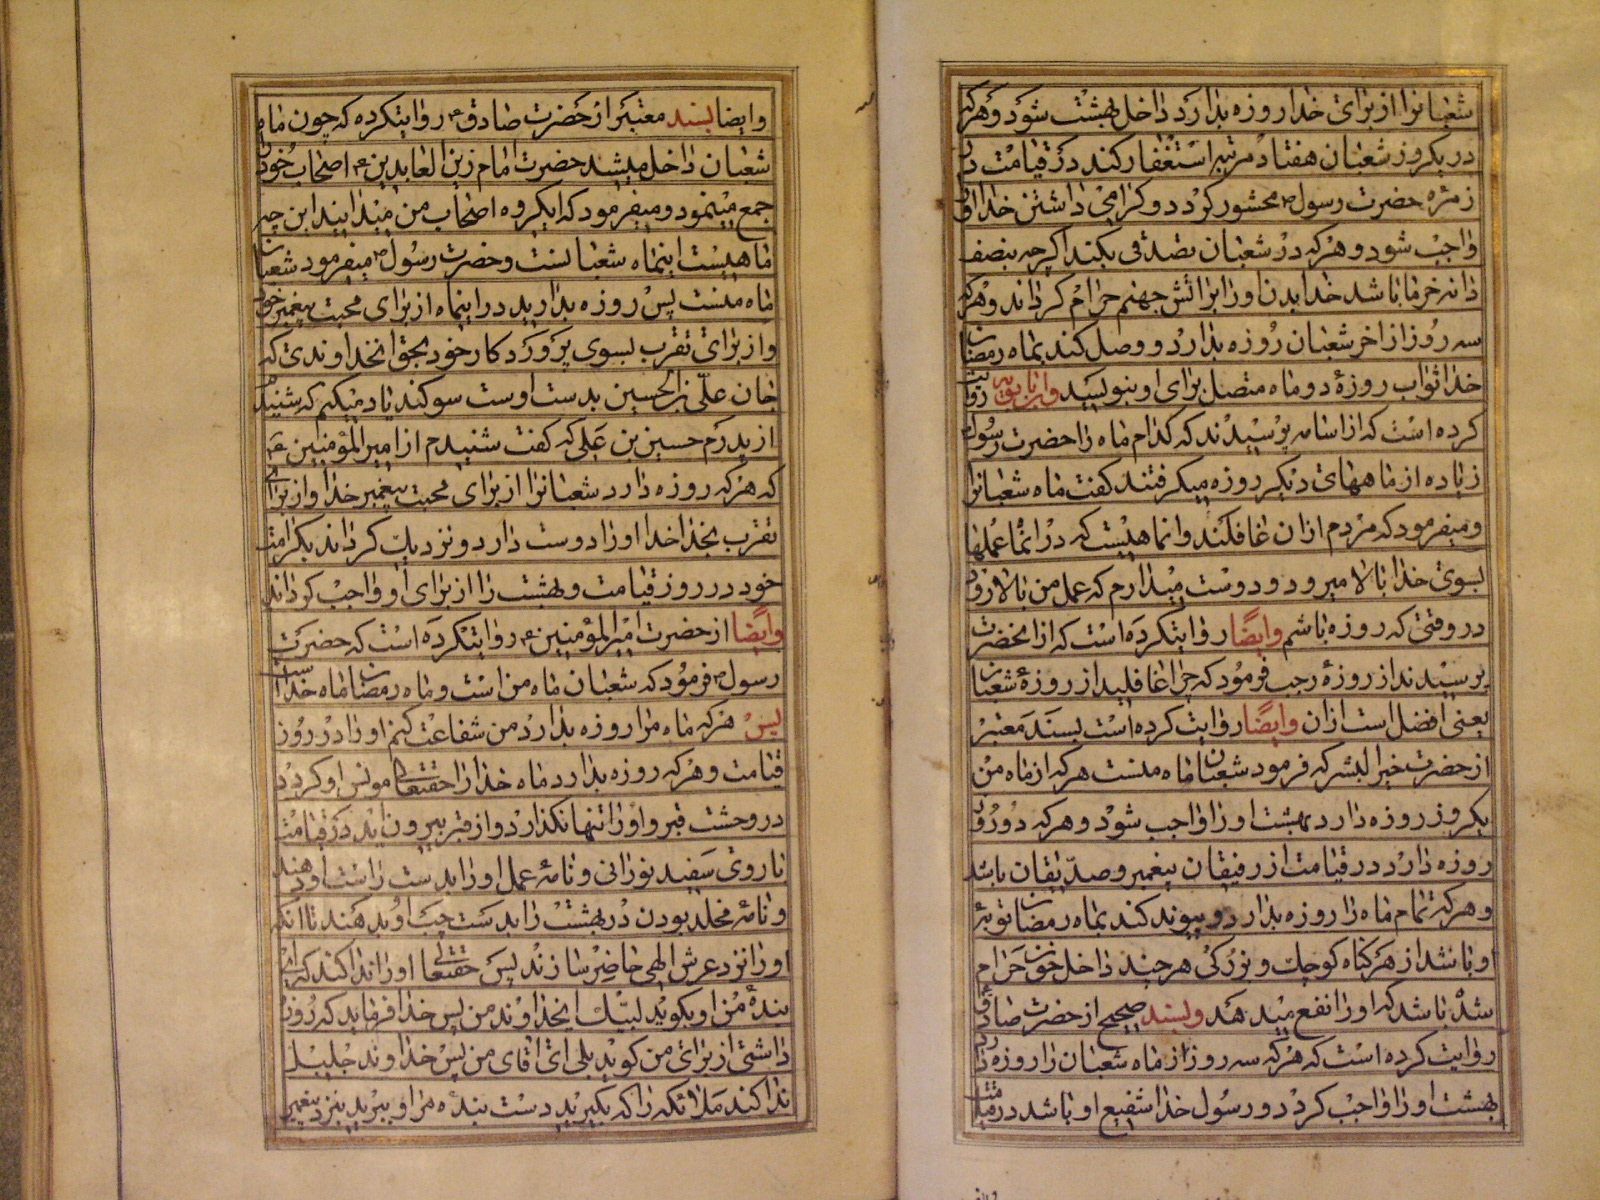 شعبانرا از برای خدا روزه بدارد داخل بهشت شود و هرکه
در یکروز شعبان هفتاد مرتبه استغفار کند در قیامت در
زمره حضرت رسول ص محشور کردد و کرامی داشتن خدا او را
واجب شود و هرکه در شعبان تصدقی بکند اکرچه بنصف
دانه خرما باشد خدا بدن او را بر اتش جهنم حرام کرداند و هرکه
سه روز از اخر شعبان روزه بدارد و وصل کند بماه رمضان
خدا ثواب روزهٔ دو ماه متصل برای او بنویسد و ابن بابویه روایت
کرده است که از اسامه پرسیدند که کدام ماه را حضرت رسول ص
زیاده از ماههای دیکر روزه میکرفتند کفت ماه شعبانرا
و میفرمود که مردم از ان غافلند و انماهیست که در انماه عملها
بسوی خدا بالا میرود و دوست میدارم که عمل من بالا رود
در وقتی که روزه باشم وایضًا روایتکرده است که از انحضرت
پرسیدند از روزهٔ رجب فرمود که چرا غافلید از روزهٔ شعبان
یعنی افضل است از ان وایضًا روایت کرده است بسند معتبر
از حضرت خیر البشر که فرمود شعبان ماه منست هرکه از ماه من
یکروز روزه دارد بهشت او را واجب شود و هرکه دو روز
روزه دارد در قیامت از رفیقان پیغمبر و صدّیقان باشد
و هرکه تمام ماه را روزه بدارد و پیوند کند بماه رمضان توبهٔ
او باشد از هر کناه کوچك و بزرکی هرچند داخل خون حرام
شده باشد که او را نفع میدهد و بسند صحیح از حضرت صادق ع
روایت کرده است که هرکه سه روز از ماه شعبان را روزه دارد
بهشت او را واجب کردد و رسول خدا شفیع او باشد در قیامت
وایضا بسند معتبر از حضرت صادق ع روایتکرده که چون ماه
شعبان داخل میشد حضرت امام زین العابدین ع اصحاب خود را
جمع مینمود و میفرمود که ایکروه اصحاب من میدانید این چه
ماهیست اینماه شعبانست و حضرت رسول ص میفرمود شعبان
ماه منست پس روزه بدارید در اینماه از برای محبت پیغمبر خود
و از برای تقرب بسوی پروردکار خود بحق انخداوندی که
جان علّی بن الحسین بدست اوست سوکند یاد میکنم که شنیدم
از پدرم حسین بن علی که کفت شنیدم از امیر المؤمنین ع
که هرکه روزه دارد شعبانرا از برای محبت پیغمبر خدا و از برای
تقرب بخدا خدا او را دوست دارد و نزدیك کرداند بکرامت
خود در روز قیامت و بهشت را از برای او واجب کرداند
وایضًا از حضرت امیر المؤمنین ع روایتکرده است که حضرت
رسول ص فرمود که شعبان ماه من است و ماه رمضان ماه خداست
پس هرکه ماه مرا روزه بدارد من شفاعت کنم او را در روز
قیامت و هرکه روزه بدارد ماه خدا را حقتعالی مونس او کردد
در وحشت قبر و او را تنها نکذارد و از قبر بیرون آید در قیامت
با روی سفید نورانی و نامهٔ عمل او را بدست راست او دهند
و نامهٔ مخلد بودن در بهشت را بدست چپ او بدهند تا انکه
او را نزد عرش الهی حاضر سازند پس حقتعالی او را ندا کند که ای
بندهٔ من او بکوید لبیّك ایخداوند من پس خدا فرماید که روزه
داشتی از برای من کوید بلی ای اقای من پس خداوند جلیل
ندا کند ملائکه را که بکیرید دست بندهٔ مرا و ببرید بنزد پیغمبر